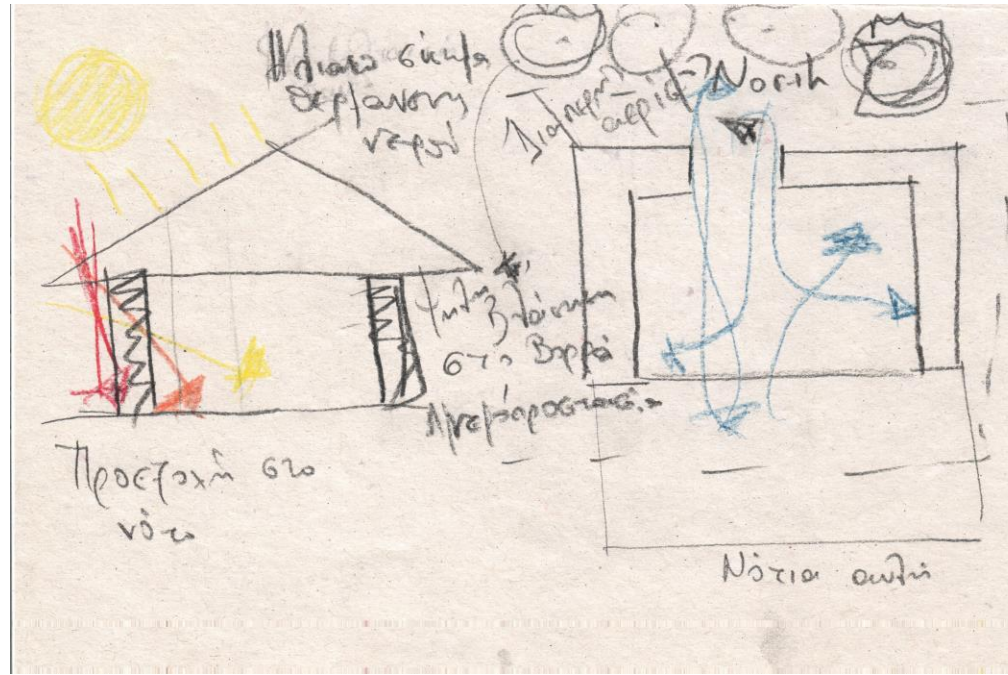 Ηλιακό σύστημα
θέρμανσης
νερού
Διαμπερής
αερισμός
North
Ψηλή
βλάστηση
στο Βορρά
Ανεμοπροστασία
Προεξοχή στο
νότο
Νότια αυλή